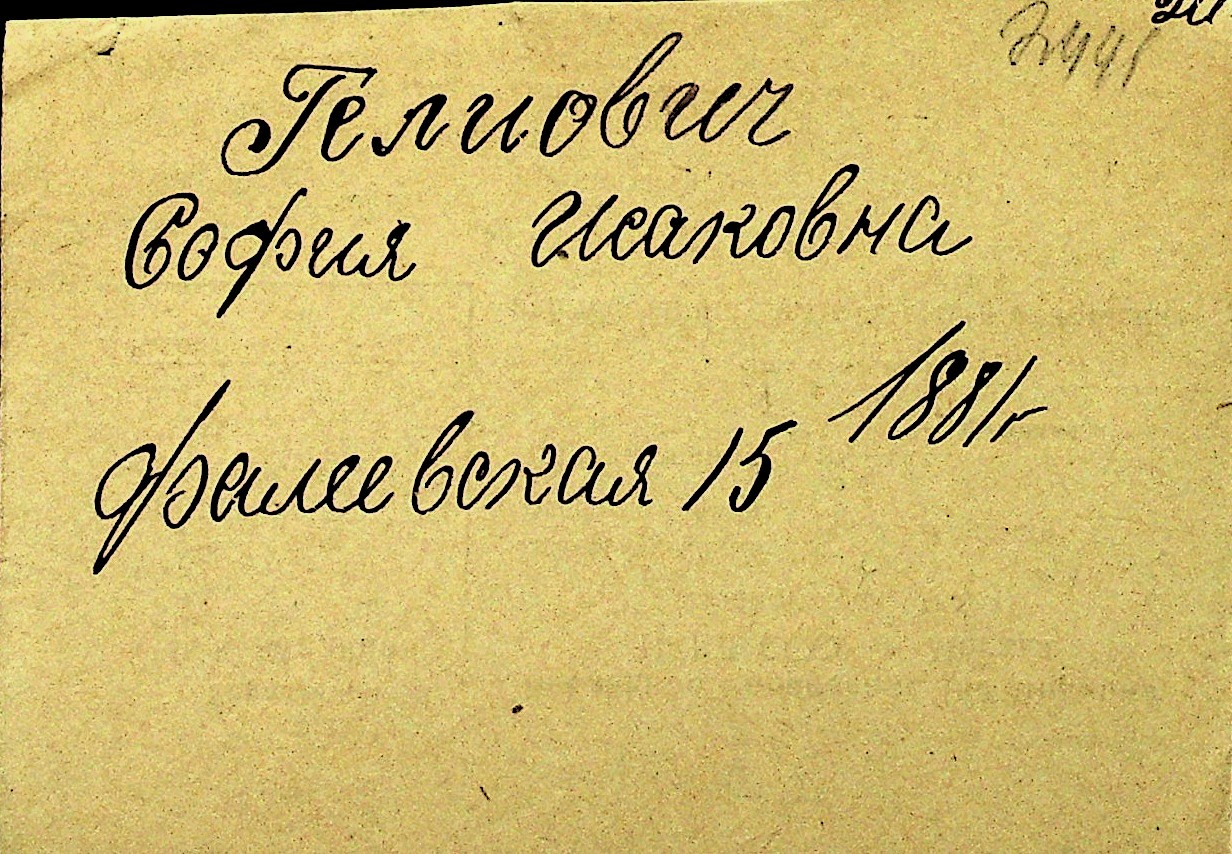 Гелиович
София Исаковна
1881г
Фалеевская 15